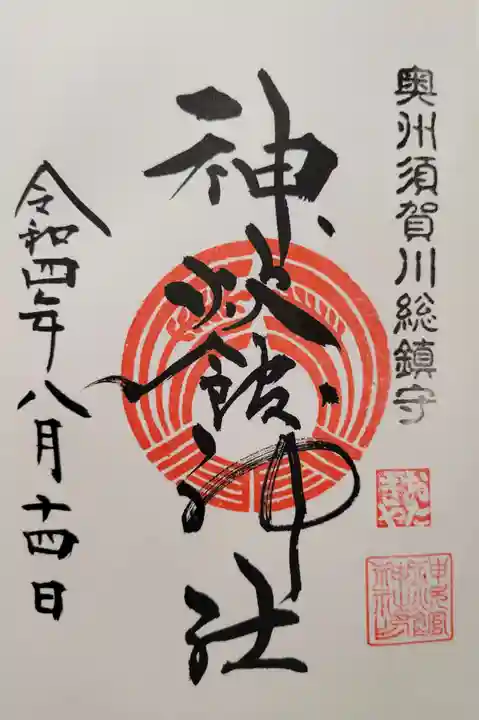 奥州須賀川総鎮守
神炊館神社
令和四年八月十四日